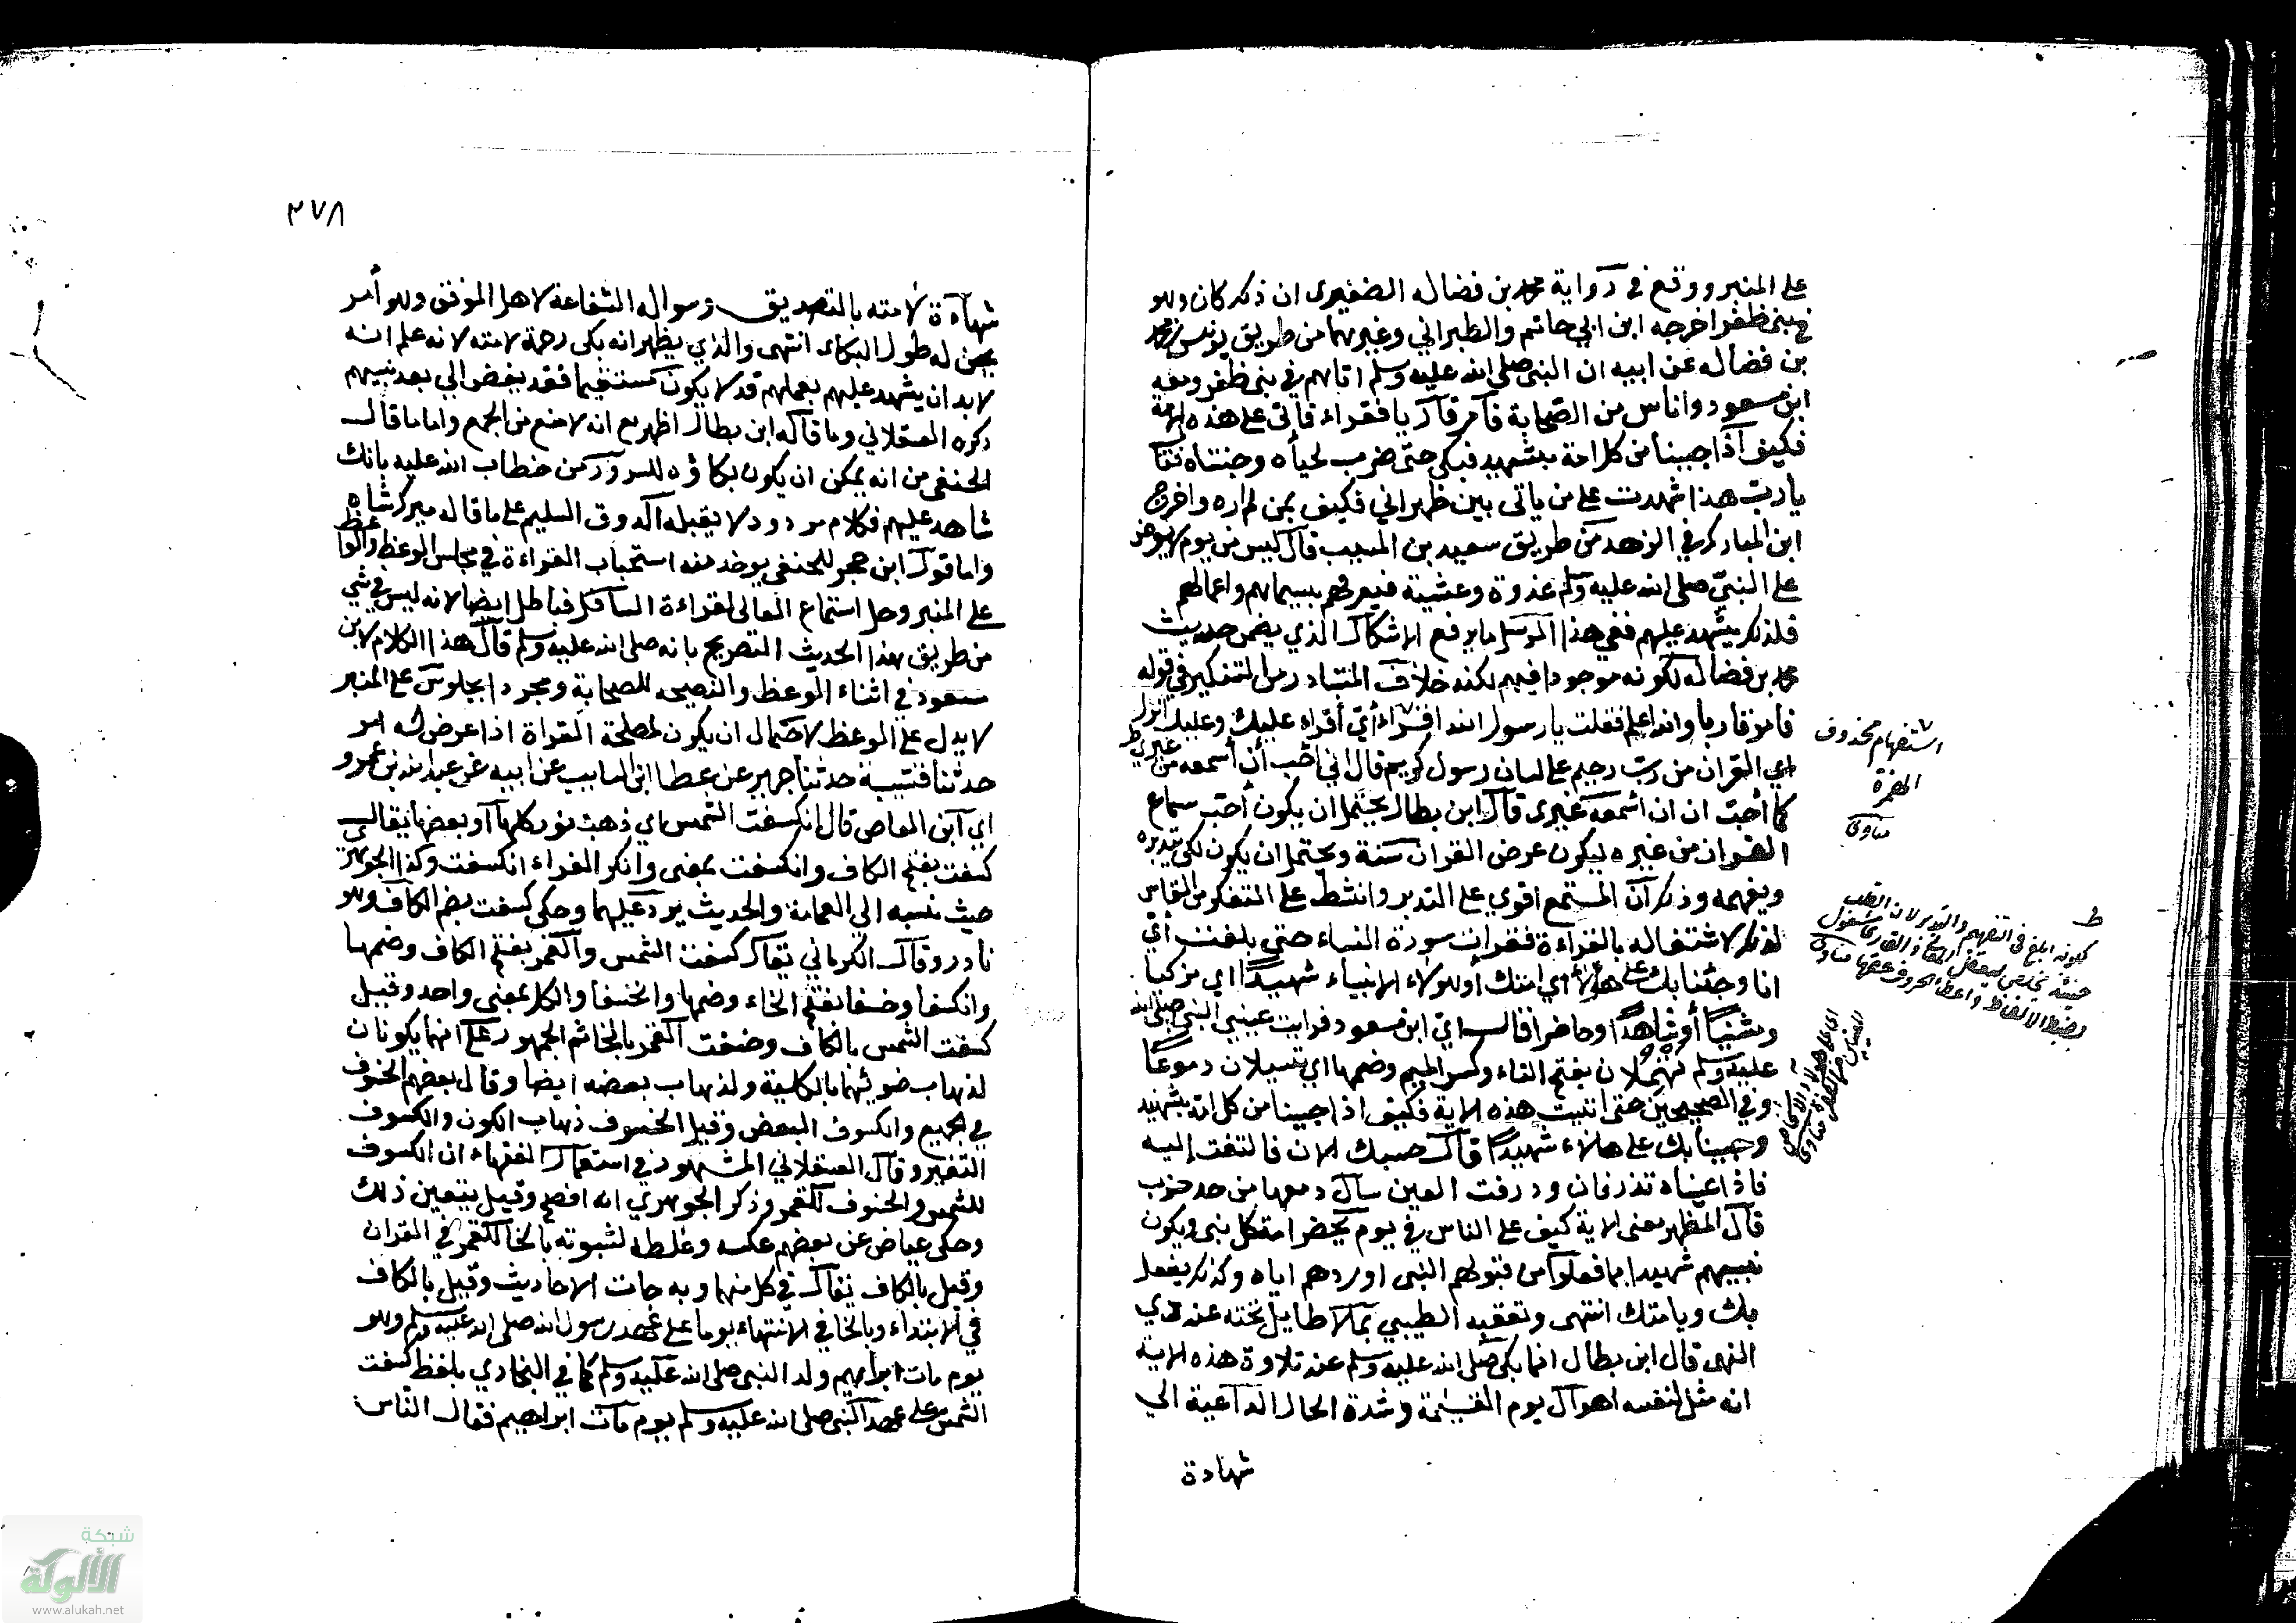 على المنبر ووقع في رواية محمد بن فضاله الضفيرى ان ذلك كان وهو
في بنى ظفر اخرجه ابن ابي حاتم والطبراني وغيرهما من طريق يونس بن محمد
بن فضاله عن ابيه ان النبى صلى الله عليه وسلم اتاهم في بنى ظفر ومعه
ابن مسعود واناس من الصحابة فامر قارئا فقراء فاتى على هذه الاية
فكيف اذا جينا من كل امة بشهيد فبكى حتى ضرب لحياه وجنتاه فقال
يا رب هذا شهدت على من ياتى بين ظهراني فكيف بمن لم اره واخرج
ابن المبارك في الزهد من طريق سعيد بن المسيب قال ليس من يوم الا يعرض
على النبيّ صلى الله عليه وسلم غدوة وعشية فيعرفهم بسيماهم واعمالهم
فلذلك يشهد عليهم ففي هذا المرسل ما يرفع الاشكال الذي يضمن حديث
محمد بن فضاله لكونه موجودا فيهم لكنه خلاف المتبادر من التنكير في قوله
فامر قاريا والله اعلم فقلت يا رسول الله اقراء أي أقراء عليك وعليك انزل
اي القران من ربّ رحيم على لسان رسول كريم قال اني احّب أن أسمعه من غيري ط
كما أحبّ ان اسمعه غيرى قال ابن بطال يحتمل ان يكون أحبّ سماع
القران من غيره ليكون عرض القران سنة ويحتمل ان يكون لكى يتدبره
ويفهمه وذلك ان المستمع اقوي على التدبر وانشط على التفكر من القاري
لذلك لاشتغاله بالقراءة فقرات سورة النساء حتى بلغت أي
انا وجئنا بك على هؤلاء اي امتك أو هولاء الانبياء شهيدًا اي مزكيا
ومثنيًا أو شاهدًا او حاضرا قال اي ابن مسعود فرايت عينيي النبى صلى الله
عليه وسلم تهمِلان بفتح التاء وكسر الميم وضمها اي تسيلان دموعًا
وفي الصحيحين حتى اتيت هذه الاية فكيف اذا جينا من كل امة بشهيد
وجينا بك على هالاء شهيدًا قال حسبك الان فالتفت إليه
فاذا عيناه تذرفان وذرفت العين سال دمعها من حد ضرب
قال المظهر معنى الاية كيف على الناس في يوم يحضر امة كل نبى ويكون
نبيهم شهيدا بما فعلوا من قبولهم النبى او ردهم اياه وكذلك يفعل
بك وبامتك انتهى وتعقبه الطيبي بما لا طايل تحته عند ذي
النهى قال ابن بطال انما بكى صلى الله عليه وسلم عند تلاوة هذه الاية
انه مثل لنفسه اهوال يوم القيٰمة وشدة الحال الداعية الي
شهادة
استفهام محذوف
الهمزة
مناوى
ط
لكونه ابلغ في التفهم والتدبر لان القلب
حينئذ يخلص لتعقل المعاني والقارى مشغول
بضبط الالفاظ واعطا الحروف حقها مناوى
٣٧٨
شهادة لامته بالتصديق وسواله الشفاعة لاهل الموقف وهو أمر
يحق له طول البكاء انتهى والذي يظهر انه بكى رحمة لامته لانه علم انه
لا بد ان يشهد عليهم بعملهم قد لا يكون مستقيما فقد يفضى الي تعذيبهم
ذكره العسقلاني وما قاله ابن بطال اظهر مع انه لا منع من الجمع واما ما قال
الحنفى من انه يمكن ان يكون بكاؤه للسرور من خطاب الله عليه بانك
شاهد عليهم فكلام مردود لا يقبله الذوق السليم على ما قاله ميرك شاه
واما قول ابن حجر للحنفى يوخذ منه استحباب القراءة في مجلس الوعظ والوا عظ
على المنبر وحل استماع العالى لقراءة السافل فباطل ايضا لانه ليس في شي
من طريق هذا الحديث التصريح بانه صلى الله عليه وسلم قال هذا الكلام لابن
مسعود في اثناء الوعظ والنصيحه للصحابة ومجرد الجلوس على المنبر
لا يدل على الوعظ لاحتمال ان يكون لمصلحة القراة اذا عرض له امر
حدثنا قتيبة حدثنا جرير عن عطا ابن السايب عن ابيه عن عبد الله بن عمرو
اي ابن العاص قال انكسفت الشمس اي ذهب نور كلها او بعضها يقال
كسفت بفتح الكاف وانكسفت بمعنى وانكر الفراء انكسفت وكذا الجوهرى
حيث نسبه الي العامة والحديث يرد عليهما وحكى كسفت بضم الكاف وهو
نادر وقال الكرماني يقال كسفت الشمس والقمر بفتح الكاف وضمها
وانكسفا وخسفا بفتح الخاء وضمها وانخسفا والكل بمعنى واحد وقيل
كسفت الشمس بالكاف وخسفت القمر بالخا ثم الجمهور على انهما يكونان
لذهاب ضوئهما بالكلية ولذهاب بعضه ايضا وقال بعضهم الخسوف
في الجميع والكسوف البعض وقيل الخسوف ذهاب الكون والكسوف
التغير وقال العسقلاني المشهور في استعمال الفقهاء ان الكسوف
للشمس والخسوف للقمر وذكر الجوهري انه افصح وقيل يتعين ذلك
وحكى عياض عن بعضهم عكسه وغلطه لثبوته بالخا للقمر في القران
وقيل بالكاف يقال في كل منهما وبه جات الاحاديث وقيل بالكاف
في الابتداء وبالخا في الانتهاء يوما على عهد رسول الله صلى الله عليه وسلم وهو
يوم مات ابراهيم ولد النبى صلى الله عليه وسلم كما في البخاري بلفظ كسفت
الشمس على عهد النبى صلى الله عليه وسلم يوم مات ابراهيم فقال الناس
شبكة
الألوكة
www.alukah.net